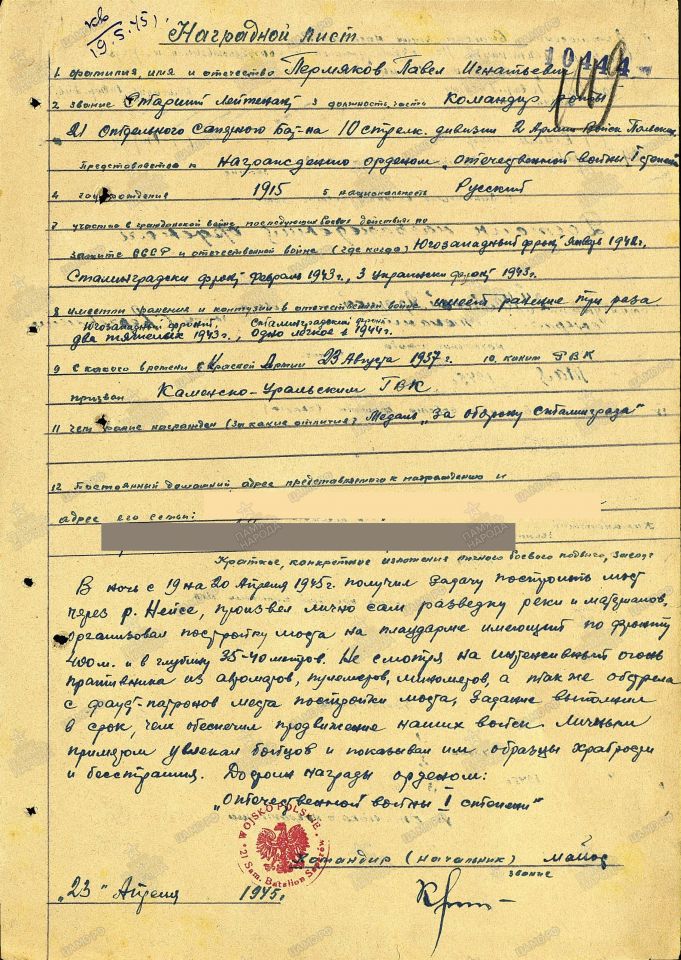 19.5.45г.
Наградной лист
10444
1 фамилия, имя и отечество Пермяков Павел Игнатьевич
2 звание Старший Лейтенант 3 должность, часть Командир роты
21 отдельного Саперного Бат-на 10 стрелк. дивизии 2 Армии Войск Польских
Представляется к награждению орденом „Отечественной войны I степени"
4 год рождения 1915 5 национальность Русский
7 участие в гражданской войне, последующих боевых действиях по
защите СССР и отечественной войне (где когда) Югозападный фронт Январь 1942г.
Сталинградски фронт февраль 1943г., 3 украински фронт 1943г.
8 имеет ли ранения и контузии в отечественной войне имеет ранение три раза
Югозападный фронт, Сталинградский фронт
два тяжелых 1943г., одно легкое в 1944г.
9 с какого времени в Красной Армии 23 Августа 1937г. 10. каким ГВК
призван Каменско-Уральским ГВК.
11 чем ранее награжден (за какие отличия) Медаль „За оборону Сталинграда"
12 Постоянный домашний адрес представляемого к награждению и
адрес его семьи:
Краткое, конкретное изложение личного боевого подвига,
В ночь с 19 на 20 Апреля 1945г. получил задачу построить мост
через р. Нейсе, произвел лично сам разведку реки и материалов,
организовал постройку моста на плацдарме имеющий по фронту
400м. и в глубину 35-40 метров. Не смотря на интенсивный огонь
противника из автоматов, пулеметов, минометов, а также обстрела
с фауст-патронов места постройки моста, задание выполнил
в срок, чем обеспечил продвижение наших войск. Личным
примером увлекал бойцов и показывал им образцы храбрости
и бесстрашия. Достоин награды орденом:
„Отечественной войны I степени"
WOJSKO POLSKIE
21 Sam. Batalion Saperów
Командир (начальник) майор
звание
„23" Апреля 1945г.